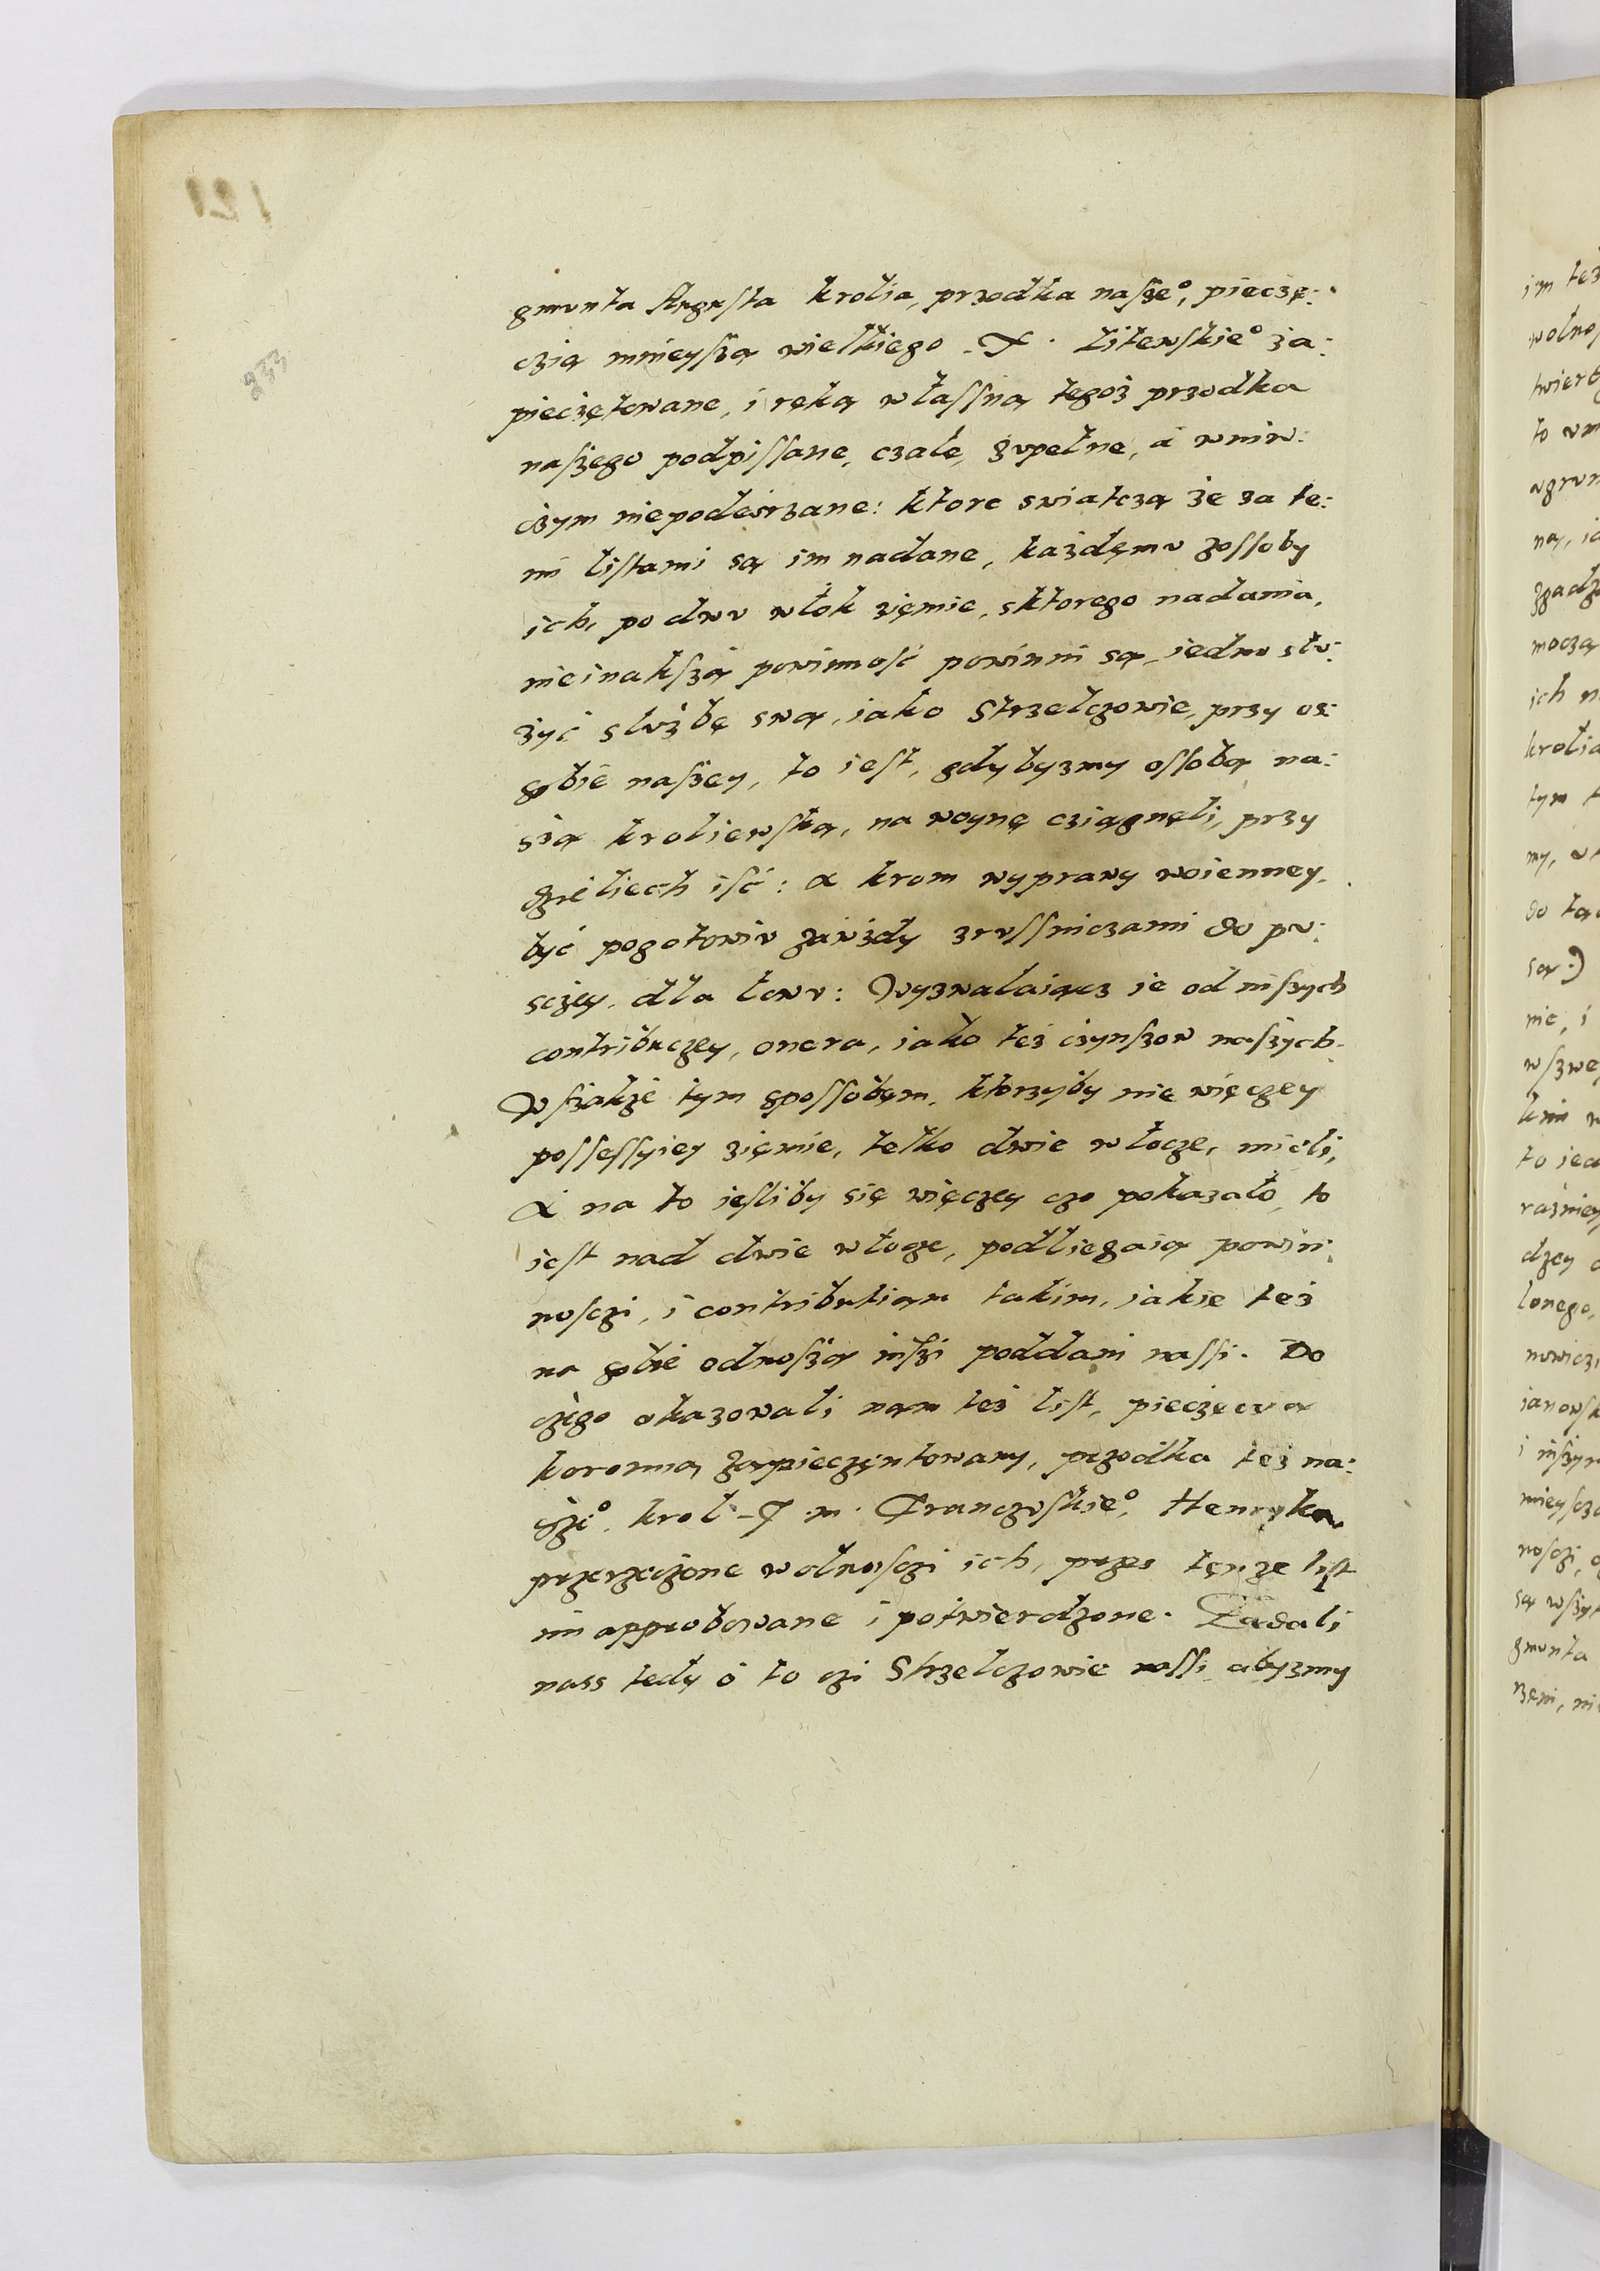 gmunta Augusta krolia, przodka naszeº, pieczę:
czią mnieyszą wielkiego X. Litewskieº za:
pieczętowane, i ręką własną tegoż przodka
naszego podpissane, czale, zupełne, a wniw:
czym niepodeirzane: ktore swiatczą że za te:
mi listami są im nadane, każdęmu zossoby
ich, po dwu włok zięmie, sktorego nadania,
nieinakszą powinność powinni są, iedno słu:
żyć służbę swą, iako Strzelczowie, przy os:
sobie naszey, to iest, gdybyzmy ossobą na:
szą kroliewską, na woynę cziągnęli, przy
czieliech iść: a krom wyprawy woienney,
być pogotowiu zawżdy zrussniczami do pu:
sczey, dla łowu: Wyzwalaiącz ie od inszych
contribuczey, onera, iako też czynszow naszych.
Wszakże tym spossobęm, ktorzyby nie więczey
possessyiey zięmie, telko dwie włocze, mieli,
A na to iesliby się więczey czo pokazało, to
iest nad dwie włocze, podliegaią powin:
nosczi, i contributiąm takim, iakie też
na sobie odnoszą inszi poddani nassi. Do
czego okazowali nąm też list, pieczęcią
koronną zapieczęntowany, przodka też na:
szeº, krol J. m. Franczuskieº, Henryka,
przerzeczone wolnosczi ich, przes tęnże list
im approbowane i potwierdzone. Żądali
nass tedy o to czi Strzelczowie nassi abyzmy